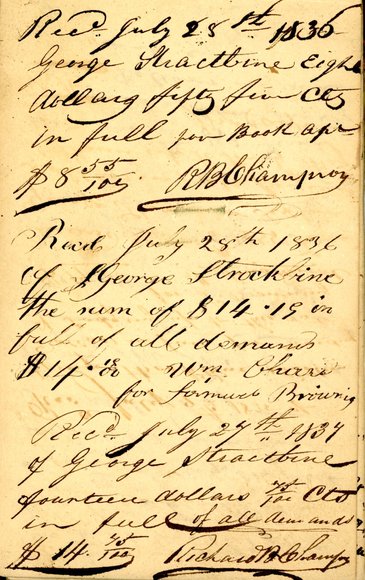 Recd. July 28th 1836
George Stractbine Eight
dollars fifty five Cts
in full for Book apr
$ 8 55/100. RB Champion
Recd July 28th 1836
of George Strockbine
the sum of $14.19 in
full of all demands
$14. Wm.
for Browning
Recd. July 27th 1837
of George Stractbine
fourteen dollars 75/100 Cts
in full of all demands
$ 14. 75/100 Richard B Champion